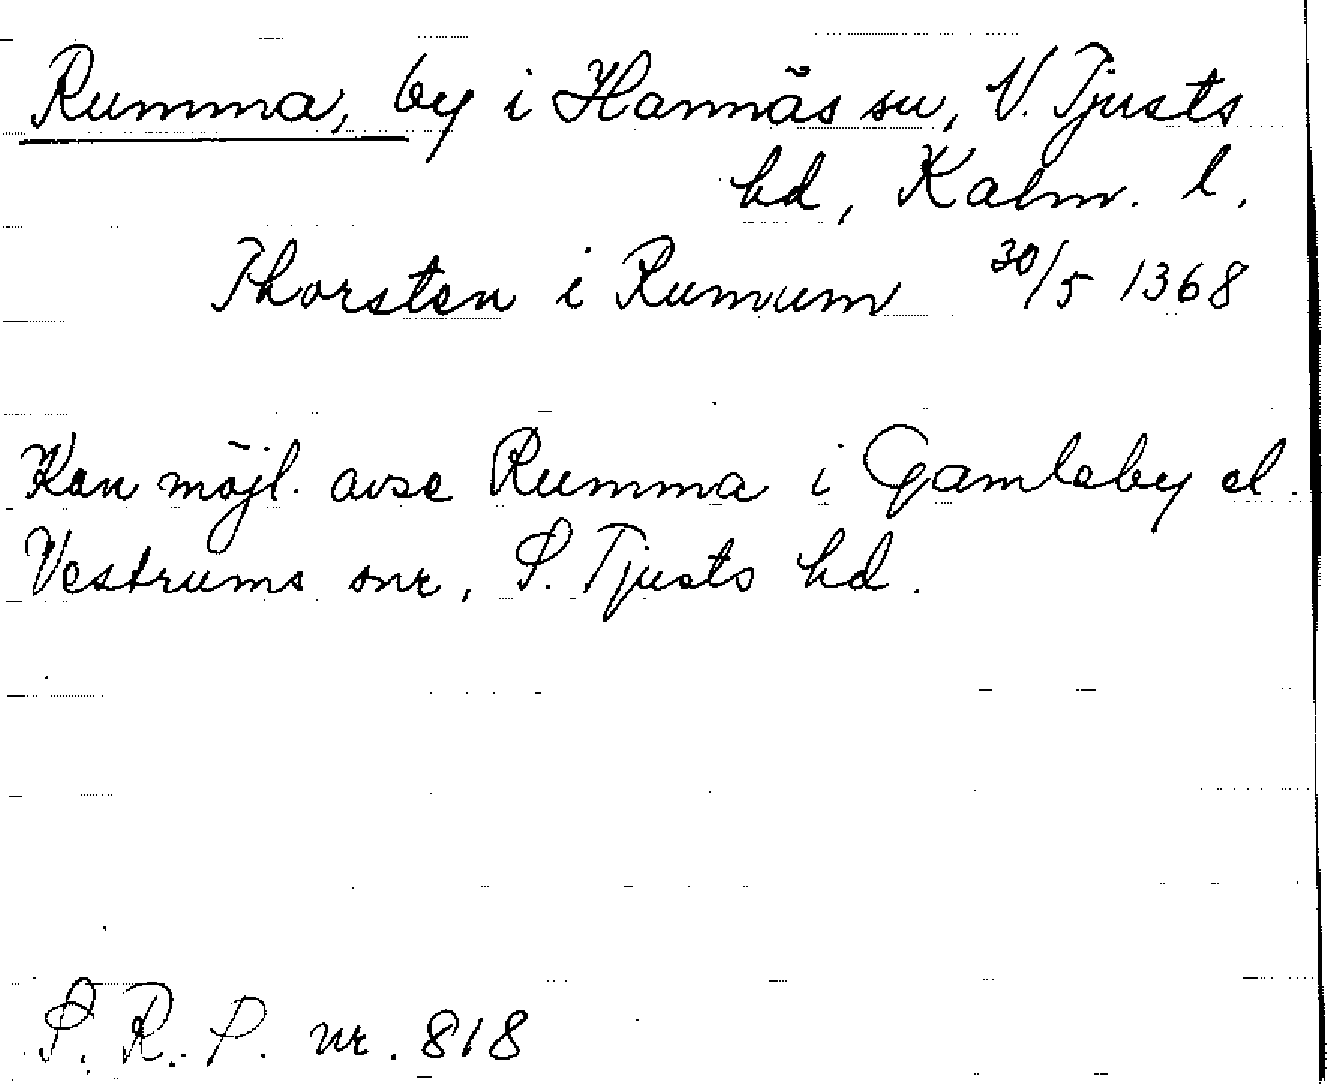 Rumma, by i Hannäs sn, N. Tjusts
hd, Kalm. l.
Thorsten i Rumum 30/5 1368
Kan möjl. avse Rumma i Gamleby el.
Vestrums snr, S. Tjusts hd.
S. R. P. nr. 818